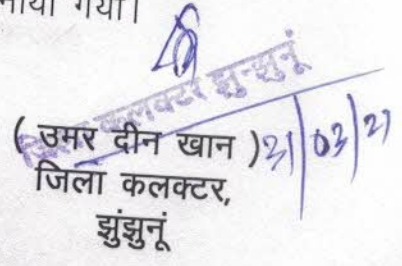 गया।
जिला कलक्टर झुन्झुनूं
( उमर दीन खान ) 31/03/21
जिला कलक्टर,
झुंझुनूं